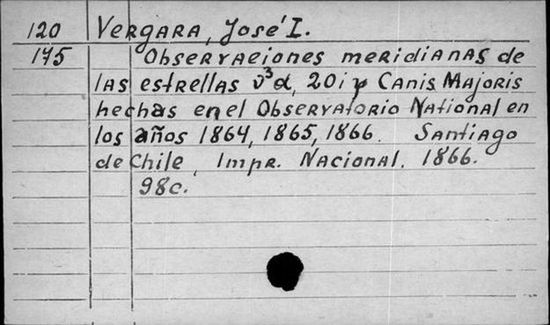 120 VERGARA, José I.
175 Observaciones meridianas de
las estrellas v³d, 20 i y Canis Majoris
hechas en el Observatorio National en
los años 1864, 1865, 1866. Santiago
de Chile, Impr. Nacional. 1866.
98c.